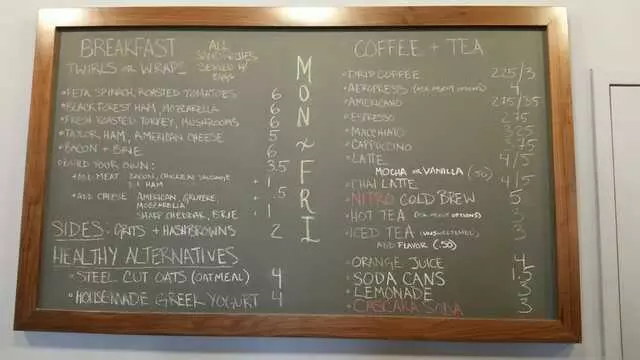 BREAKFAST
TWIRLS OR WRAPS
ALL
SANDWICHES
SERVED W/
EGGS
• FETA, SPINACH, ROASTED TOMATOES 6
• BLACK FOREST HAM, MOZZARELLA 6
• FRESH ROASTED TURKEY, MUSHROOMS 6
• TAYLOR HAM, AMERICAN CHEESE 5
• BACON + BRIE 6
• BUILD YOUR OWN: 3.5
+ ADD MEAT BACON, CHICKEN SAUSAGE + 1
HAM
+ ADD CHEESE AMERICAN, GRUYERE, + .5
MOZZARELLA
SHARP CHEDDAR, BRIE + 1
SIDES: GRITS + HASHBROWNS 2
HEALTHY ALTERNATIVES
• STEEL CUT OATS (OATMEAL) 4
• HOUSEMADE GREEK YOGURT 4
MON ~ FRI
COFFEE + TEA
• DRIP COFFEE 2.25/3
• AEROPRESS (ASK ABOUT OPTIONS) 4
• AMERICANO 2.75/3.5
• ESPRESSO 2.75
• MACCHIATO 3.25
• CAPPUCCINO 3.75
• LATTE 4/5
MOCHA OR VANILLA (.50)
• CHAI LATTE 4/5
• NITRO COLD BREW 5
• HOT TEA (ASK ABOUT OPTIONS) 3
• ICED TEA (UNSWEETENED) 3
ADD FLAVOR (.50)
• ORANGE JUICE 4
• SODA CANS 1.5
• LEMONADE 3
• CASCARA SODA 3